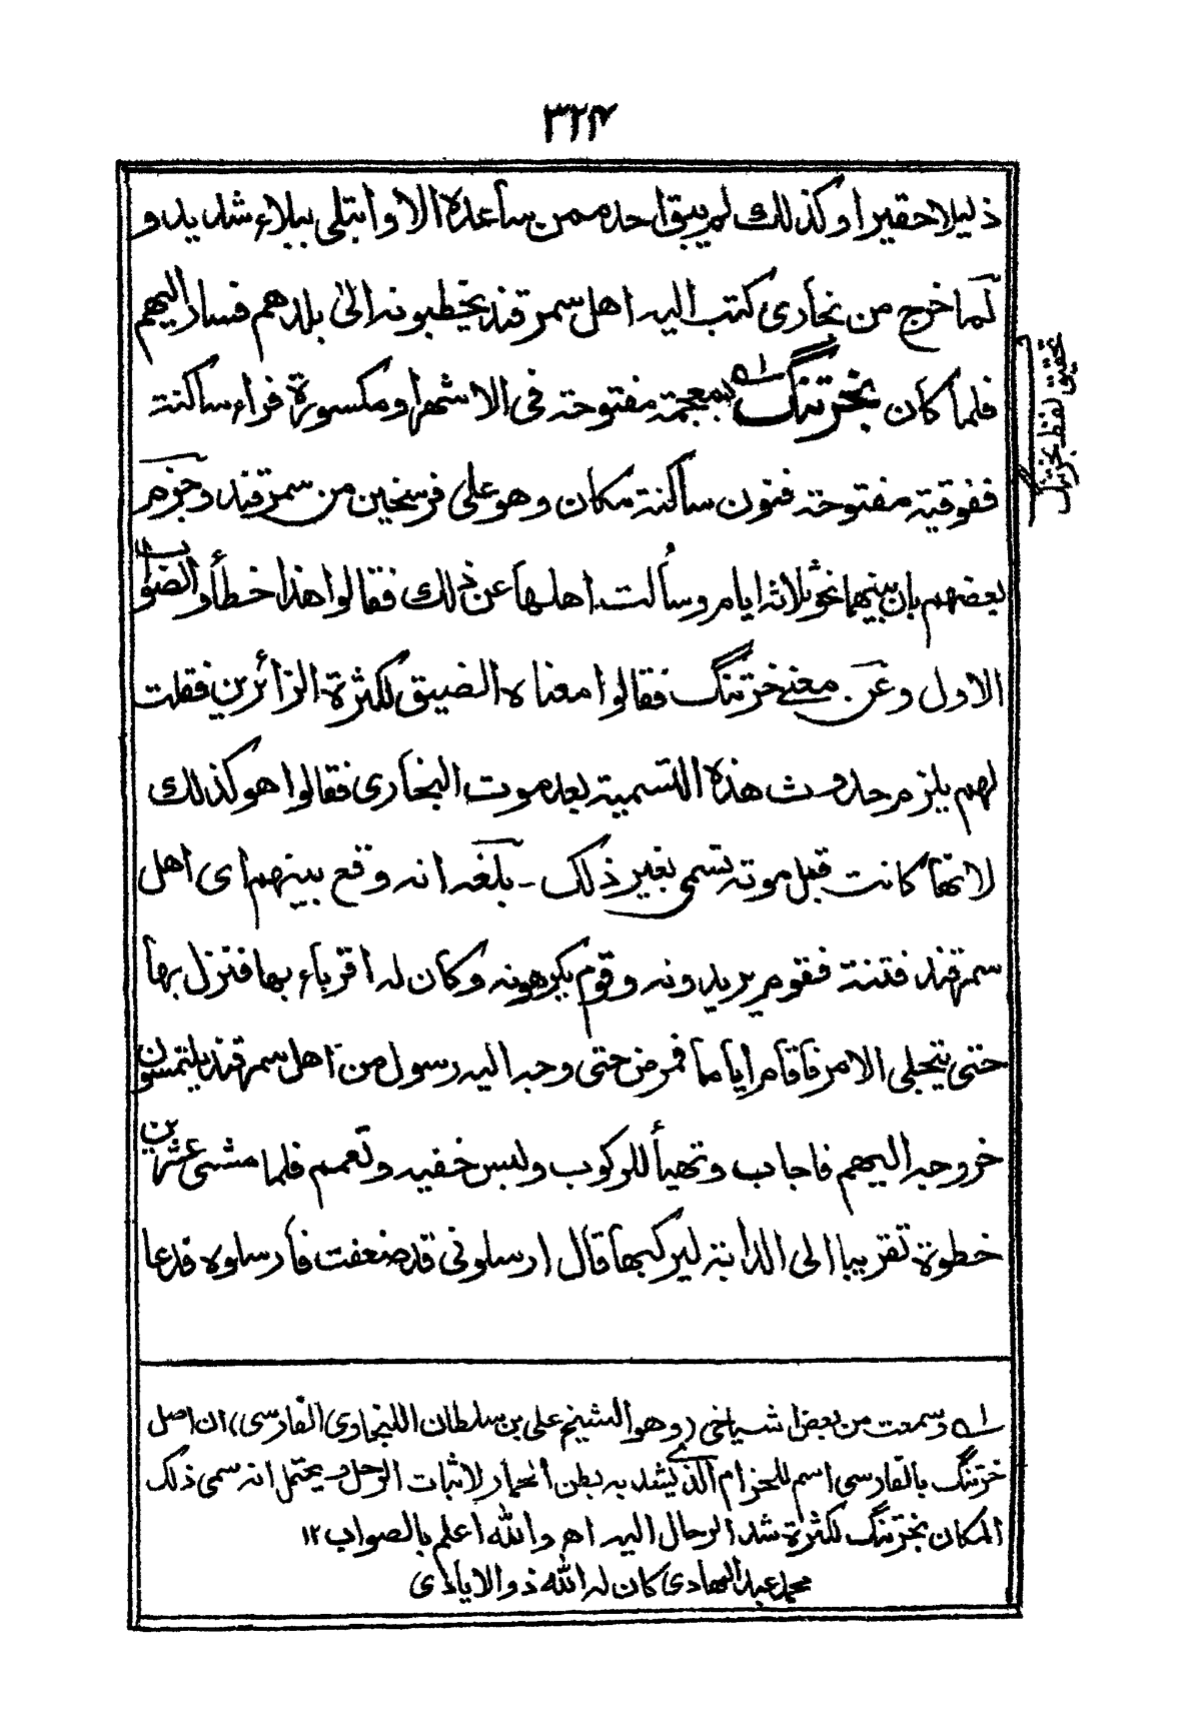 ۳۲۴
ذليلا حقيرا وكذلك لم يبق احد ممن ساعده الا وابتلى ببلاء شديد و
لما خرج من بخارى كتب اليه اهل سمرقند يخطبونه الى بلدهم فسار اليهم
فلما كان بخرتنگ بمعجمة مفتوحة فى الاشهر او مكسورة فراء ساكنة
ففوقية مفتوحة فنون ساكنة مكان وهو على فرسخين من سمرقند وجزم
بعضهم بان بينهما نحو ثلاثة ايام وسألت اهلها عن ذلك فقالوا هذا خطأ والصواب
الاول وعن معنى خرتنگ فقالوا معناه الضيق لكثرة الزائرين فقلت
لهم يلزم حدوث هذه التسمية بعد موت البخارى فقالوا هو كذلك
لانها كانت قبل موته تسمى بغير ذلك - بلغه انه وقع بينهم اى اهل
سمرقند فتنة فقوم يريدونه وقوم يكرهونه وكان له اقرباء بها فنزل بها
حتى يتجلى الامر فاقام اياما فمرض حتى وجه اليه رسول من اهل سمرقند يلتمسون
خروجه اليهم فاجاب وتهيأ للركوب ولبس خفيه وتعمم فلما مشى عشرين
خطوة تقريبا الى الدابة ليركبها قال ارسلونى قد ضعفت فأرسلوه فدعا
تحقيق لفظ بخرتنگ
له وسمعت من بعض اشياخى (وهو الشيخ على بن سلطان اللنجاوى الفارسى) ان اصل
خرتنگ بالفارسى اسم للحزام الذى يشد به بطن الحمار لاثبات الرحل ويحتمل انه سمى ذلك
المكان بخرتنگ لكثرة شد الرحال اليه اهـ والله اعلم بالصواب ۱۲
محمد عبد الهادى كان له الله ذو الايادى